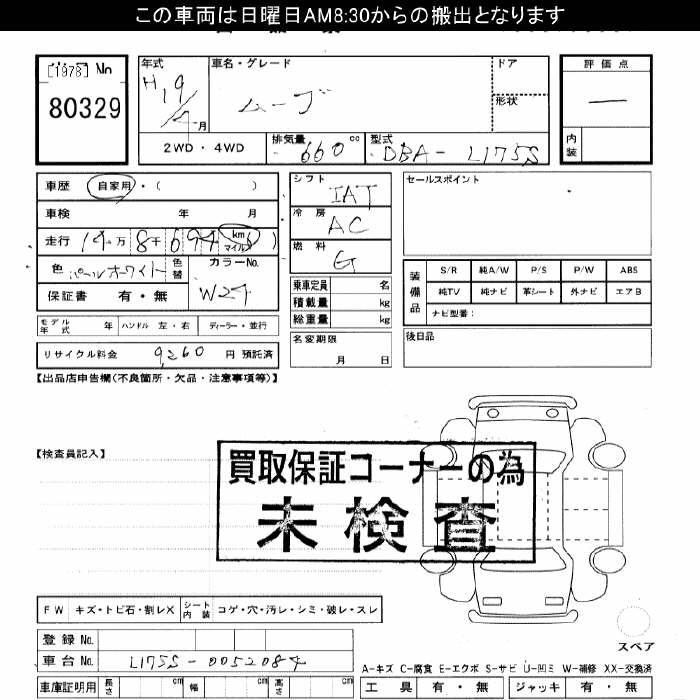 この車両は日曜日AM8:30からの搬出となります
[1978] No
80329
年式
H19/4月
車名・グレード
ムーブ
ドア
形状
評価点
—
内装
2WD・4WD
排気量 660 cc
型式 DBA-L175S
車歴 自家用・( )
車検 年 月
走行 14万8千694 km マイル
色 パールホワイト
色替
カラーNo.
W24
保証書 有・無
シフト IAT
冷房 AC
燃料 G
乗車定員 名
積載量 kg
総重量 kg
セールスポイント
装備品
S/R 純A/W P/S P/W ABS
純TV 純ナビ 革シート 外ナビ エアB
ナビ型番:
モデル年式 年 ハンドル 左・右 ディーラー・並行
リサイクル料金 9,260 円 預託済
名変期限
月 日
後日品
【出品店申告欄(不良箇所・欠品・注意事項等)】
【検査員記入】
買取保証コーナーの為
未検査
FW キズ・トビ石・割レX
シート内装 コゲ・穴・汚レ・シミ・破レ・スレ
スペア
登録 No.
車台 No. L175S-0052084
A-キズ C-腐食 E-エクボ S-サビ U-凹ミ W-補修 XX-交換済
車庫証明用 長さ cm 幅 cm 高さ cm
工具 有・無 ジャッキ 有・無